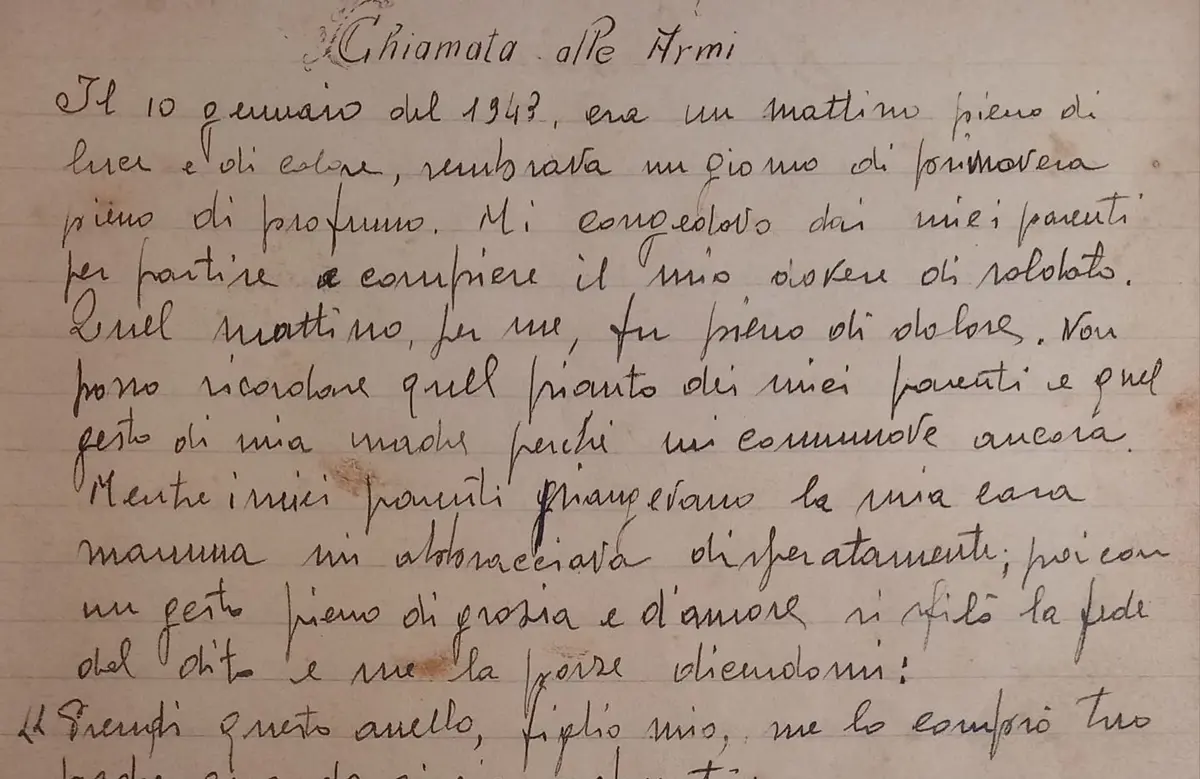 Chiamata alle Armi
Il 10 gennaio del 1943, era un mattino pieno di
luce e di colore, sembrava un giorno di primavera
pieno di profumo. Mi congedavo dai miei parenti
per partire e compiere il mio dovere di soldato.
Quel mattino, per me, fu pieno di dolore. Non
posso ricordare quell pianto dei miei parenti e quel
gesto di mia madre perché mi commuove ancora.
Mentre i miei parenti piangevano la mia cara
mamma mi abbracciava disperatamente; poi con
un gesto pieno di grazia e d'amore si sfilò la fede
dal dito e me la porse dicendomi:
"Prendi questo anello, figlio mio, me lo comprò tuo